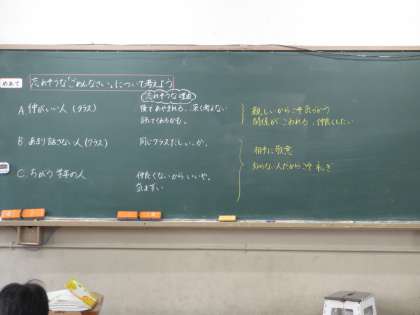 めあて
忘れそうな「ごめんなさい」について考えよう
忘れそうな理由
A. 仲がいい人(クラス)
後であやまれる、深く考えない
許してくれるかも。
親しいからこそ気をつかう
関係がこわれる、仲良くしたい
B あまり話さない人(クラス)
同じクラスだしいいか。
相手に敬意
知らない人だからこそ れいぎ
C. ちがう学年の人
仲良くないからいいや。
気まずい